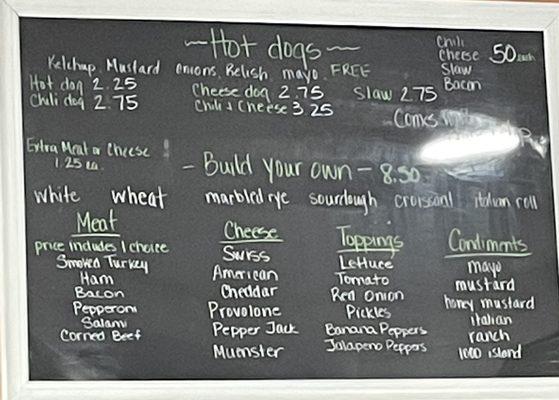 ~Hot dogs~
Ketchup, Mustard onions, Relish, mayo. FREE
Chili
Cheese
Slaw
Bacon
.50 each
Hot dog 2.25
Chili dog 2.75
Cheese dog 2.75
Chili & Cheese 3.25
Slaw 2.75
Comes
Extra Meat or Cheese
1.25 ea.
- Build your own - 8.50
white wheat marbled rye sourdough croissant italian roll
Meat
price includes 1 choice
Smoked Turkey
Ham
Bacon
Pepperoni
Salami
Corned Beef
Cheese
Swiss
American
Cheddar
Provolone
Pepper Jack
Muenster
Toppings
Lettuce
Tomato
Red Onion
Pickles
Banana Peppers
Jalapeno Peppers
Condiments
mayo
mustard
honey mustard
italian
ranch
1000 island